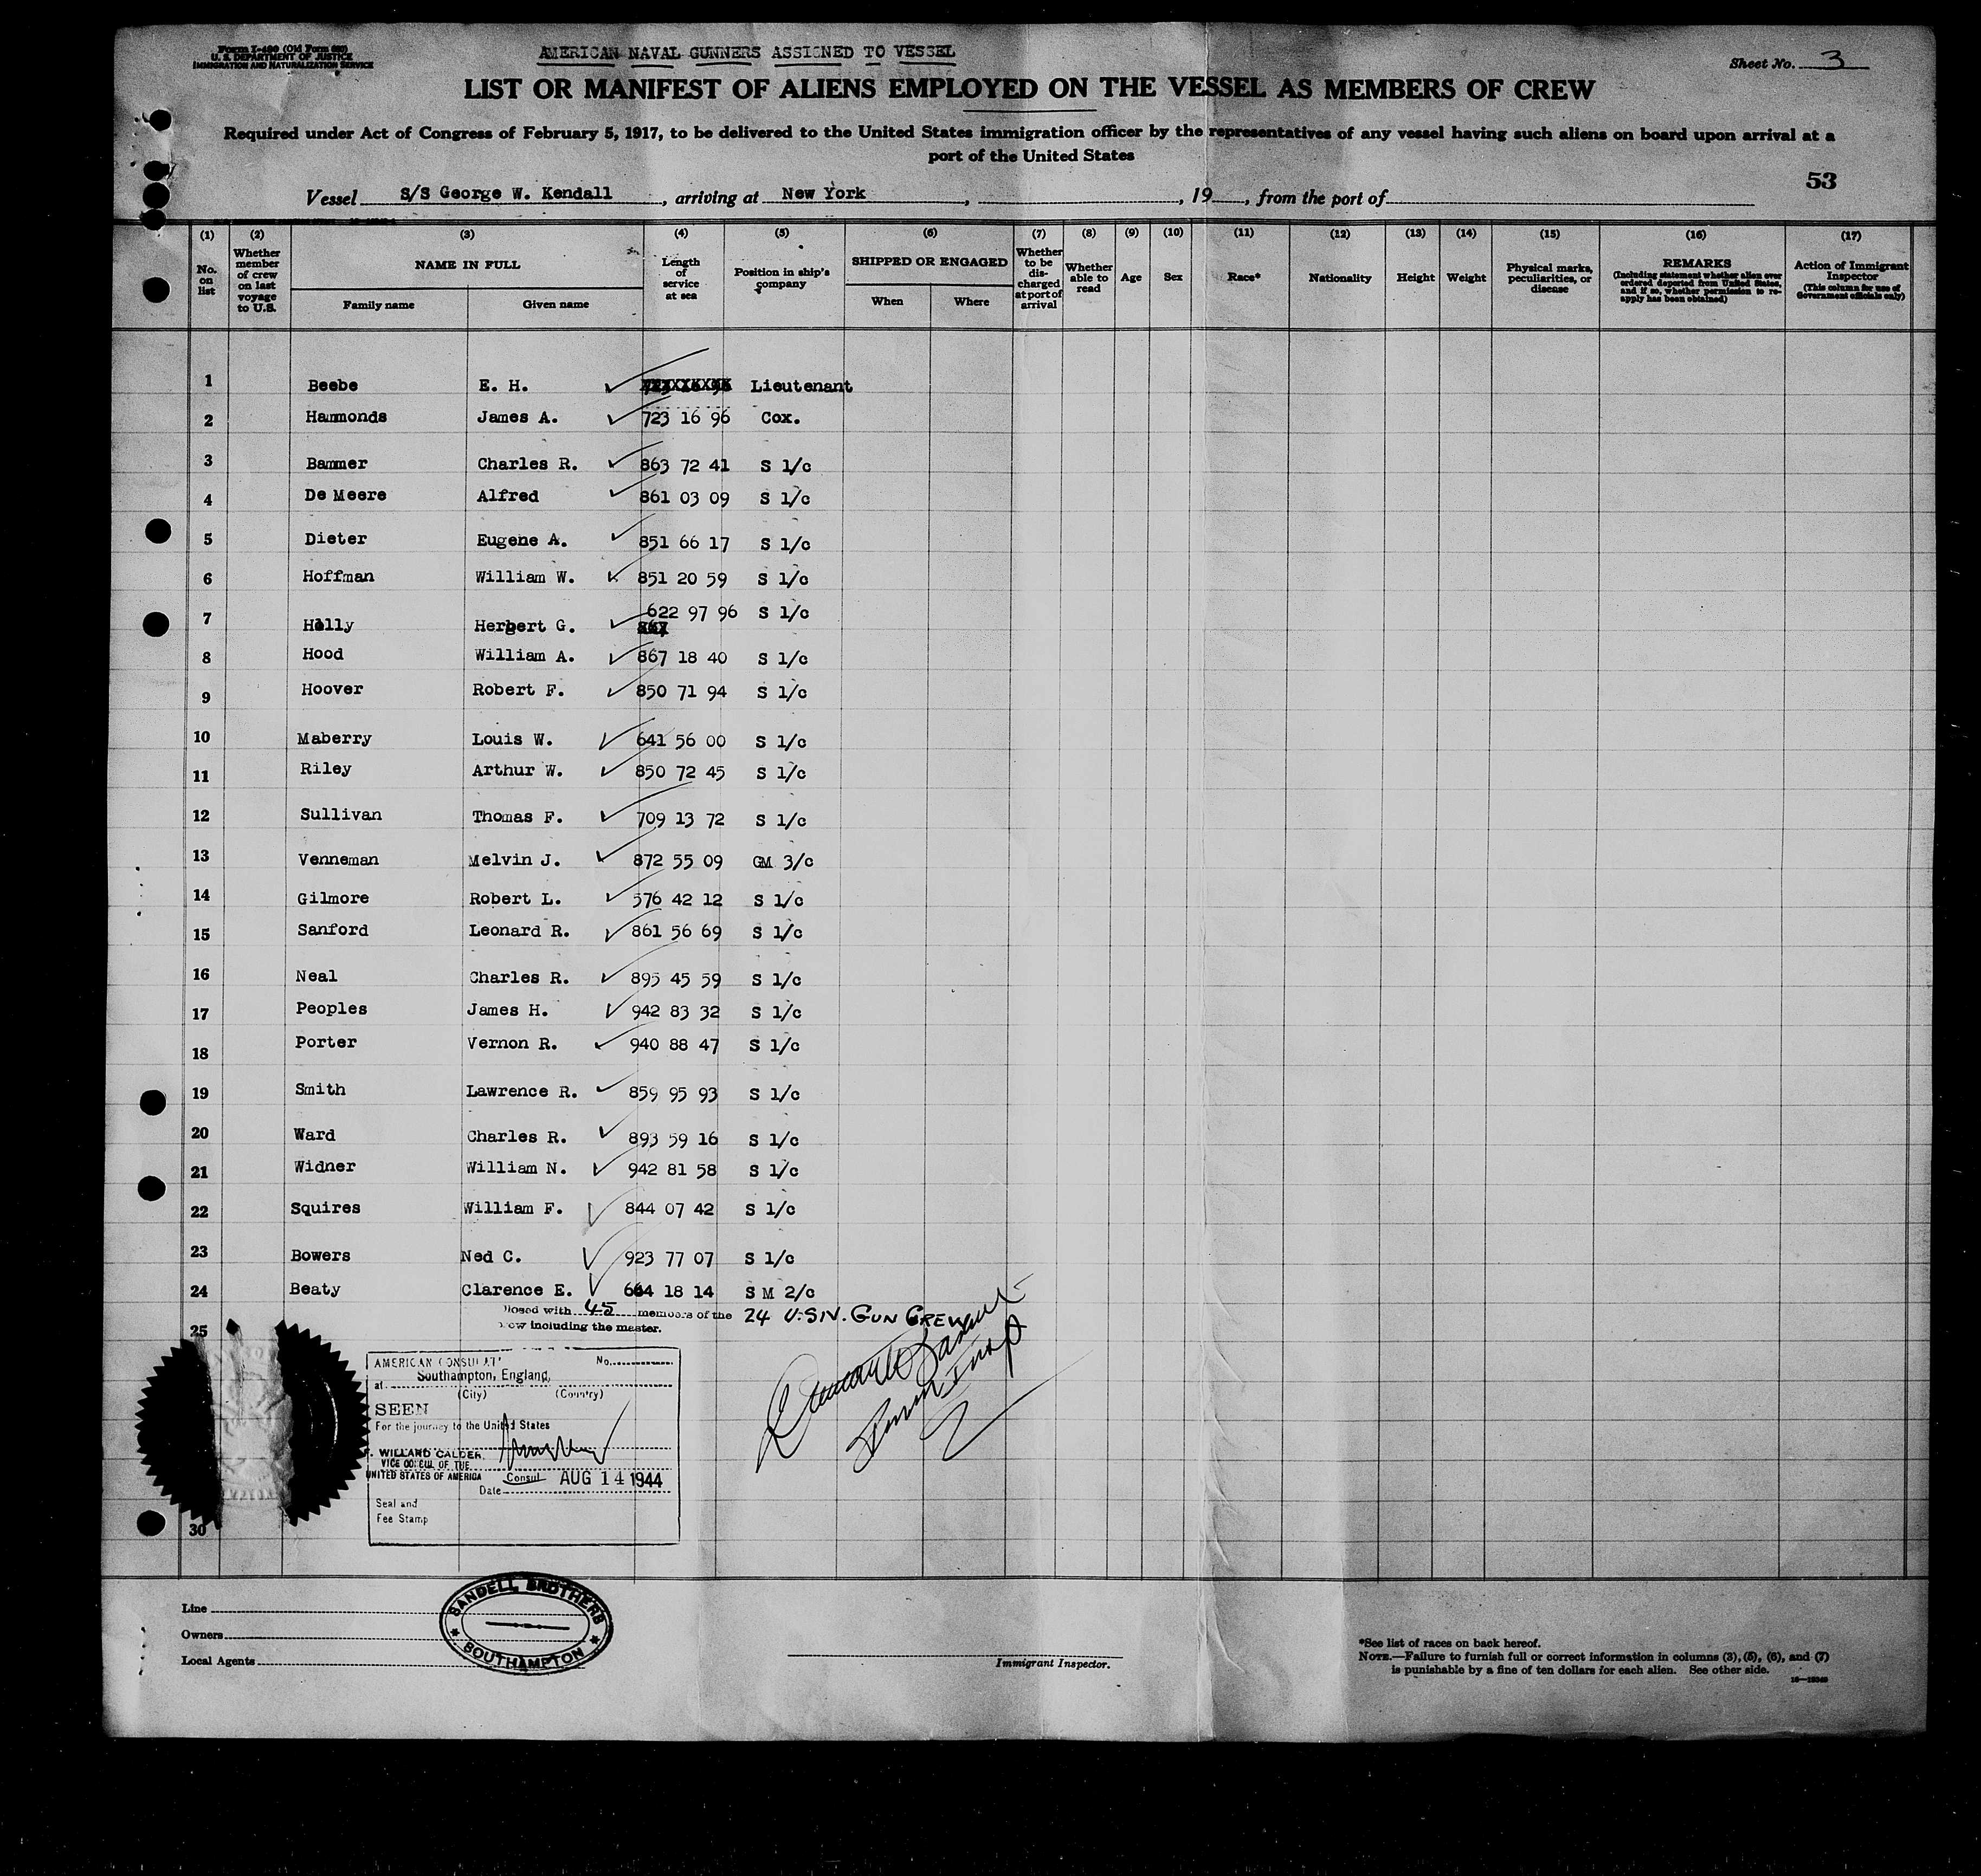 Form I-480 (Old Form 680)
U. S. DEPARTMENT OF JUSTICE
IMMIGRATION AND NATURALIZATION SERVICE
AMERICAN NAVAL GUNNERS ASSIGNED TO VESSEL
Sheet No. 3
LIST OR MANIFEST OF ALIENS EMPLOYED ON THE VESSEL AS MEMBERS OF CREW
Required under Act of Congress of February 5, 1917, to be delivered to the United States immigration officer by the representatives of any vessel having such aliens on board upon arrival at a
port of the United States
53
Vessel S/S George W. Kendall, arriving at New York, , 19 , from the port of
(1) (2) (3) (4) (5) (6) (7) (8) (9) (10) (11) (12) (13) (14) (15) (16) (17)
No. on list
Whether member of crew on last voyage to U.S.
NAME IN FULL
Family name Given name
Length of service at sea
Position in ship's company
SHIPPED OR ENGAGED
When Where
Whether to be discharged at port of arrival
Whether able to read
Age
Sex
Race*
Nationality
Height
Weight
Physical marks, peculiarities, or disease
REMARKS
(Including statement whether alien ever ordered deported from United States, and if so, whether permission to reapply has been obtained)
Action of Immigrant Inspector
(This column for use of Government officials only)
1 Beebe E. H. Lieutenant
2 Hammonds James A. 723 16 96 Cox.
3 Bammer Charles R. 863 72 41 S 1/c
4 De Meere Alfred 861 03 09 S 1/c
5 Dieter Eugene A. 851 66 17 S 1/c
6 Hoffman William W. 851 20 59 S 1/c
7 Holly Herbert G. 622 97 96 S 1/c
8 Hood William A. 867 18 40 S 1/c
9 Hoover Robert F. 850 71 94 S 1/c
10 Maberry Louis W. 641 56 00 S 1/c
11 Riley Arthur W. 850 72 45 S 1/c
12 Sullivan Thomas F. 709 13 72 S 1/c
13 Venneman Melvin J. 872 55 09 GM 3/c
14 Gilmore Robert L. 576 42 12 S 1/c
15 Sanford Leonard R. 861 56 69 S 1/c
16 Neal Charles R. 895 45 59 S 1/c
17 Peoples James H. 942 83 32 S 1/c
18 Porter Vernon R. 940 88 47 S 1/c
19 Smith Lawrence R. 859 95 93 S 1/c
20 Ward Charles R. 893 59 16 S 1/c
21 Widner William N. 942 81 58 S 1/c
22 Squires William F. 844 07 42 S 1/c
23 Bowers Ned C. 923 77 07 S 1/c
24 Beaty Clarence E. 664 18 14 S M 2/c
losed with 45 members of the 24 U.S.N. GUN CREW
row including the master.
25
AMERICAN CONSULAT No.
at Southampton, England,
(City) (Country)
SEEN
For the journey to the United States
F. WILLARD CALDER
VICE CONSUL OF THE
UNITED STATES OF AMERICA Consul AUG 14 1944
Date
Seal and
Fee Stamp
30
Line
Owners
Local Agents
SANDELL BROTHERS
SOUTHAMPTON
Immigrant Inspector.
*See list of races on back hereof.
NOTE.—Failure to furnish full or correct information in columns (3), (5), (6), and (7)
is punishable by a fine of ten dollars for each alien. See other side.